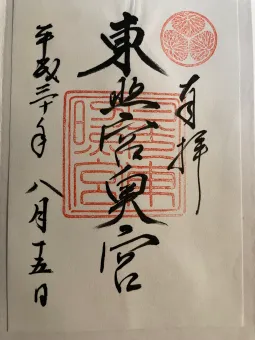 奉拝
東照宮奥宮
平成三十年 八月十五日